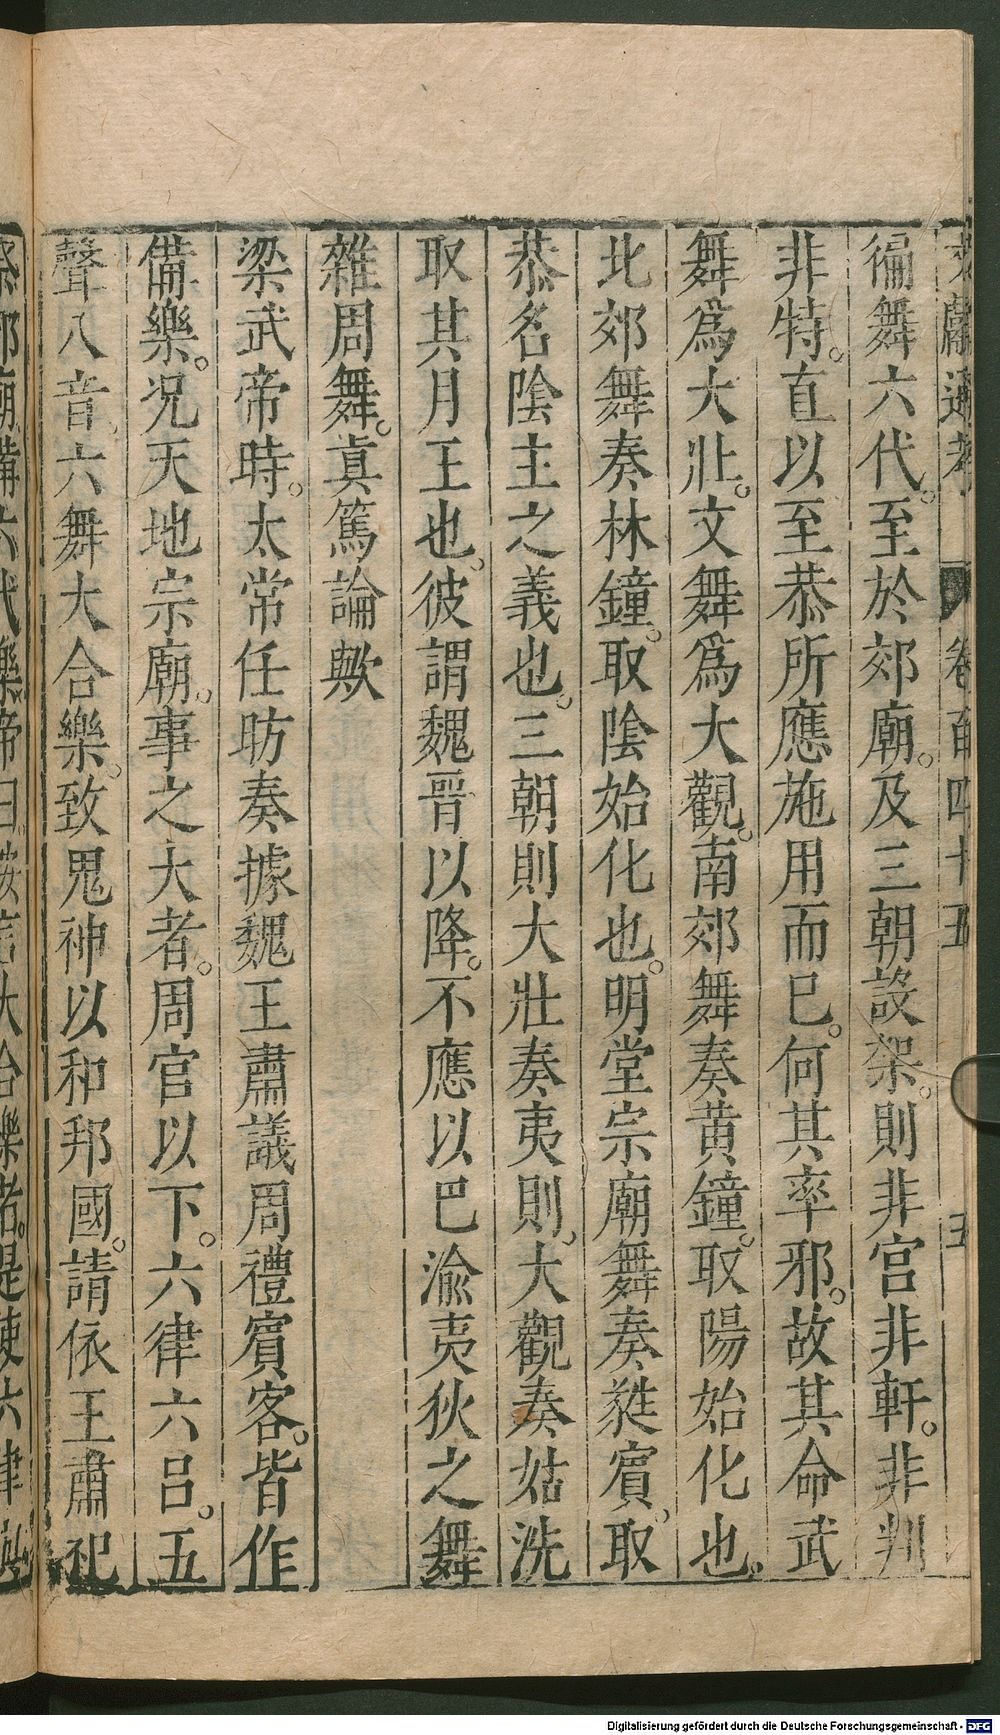 文獻通考 卷百四十五 五
徧舞六代。至於郊廟。及三朝設架。則非宫非軒。非判
非特。直以至恭所應施用而已。何其率邪。故其命武
舞爲大壯。文舞爲大觀。南郊舞奏黄鐘。取陽始化也。
北郊舞奏林鐘。取陰始化也。明堂宗廟舞奏蕤賓。取
恭名陰主之義也。三朝則大壯奏夷則。大觀奏姑洗
取其月王也。彼謂魏晉以降。不應以巴渝夷狄之舞
雜周舞。眞篤論歟
梁武帝時。太常任昉奏據魏王肅議周禮賓客。皆作
備樂。况天地宗廟。事之大者。周官以下。六律六吕。五
聲八音。六舞大合樂。致鬼神以和邦國。請依王肅祀
祭郊廟備六代樂帝曰。
Digitalisierung gefördert durch die Deutsche Forschungsgemeinschaft - DFG